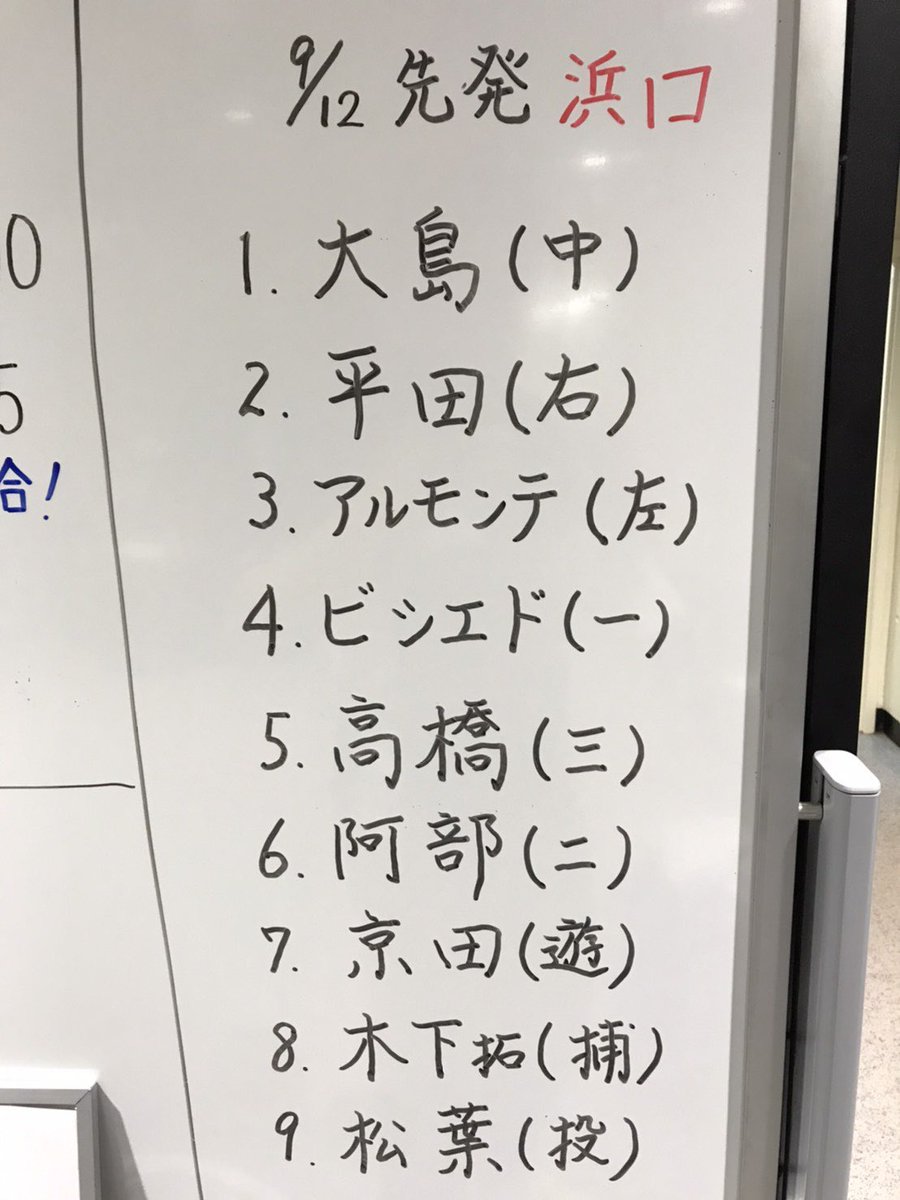 0
5
合!
9/12 先発 浜口
1. 大島(中)
2. 平田(右)
3. アルモンテ(左)
4. ビシエド(一)
5. 高橋(三)
6. 阿部(二)
7. 京田(遊)
8. 木下拓(捕)
9. 松葉(投)